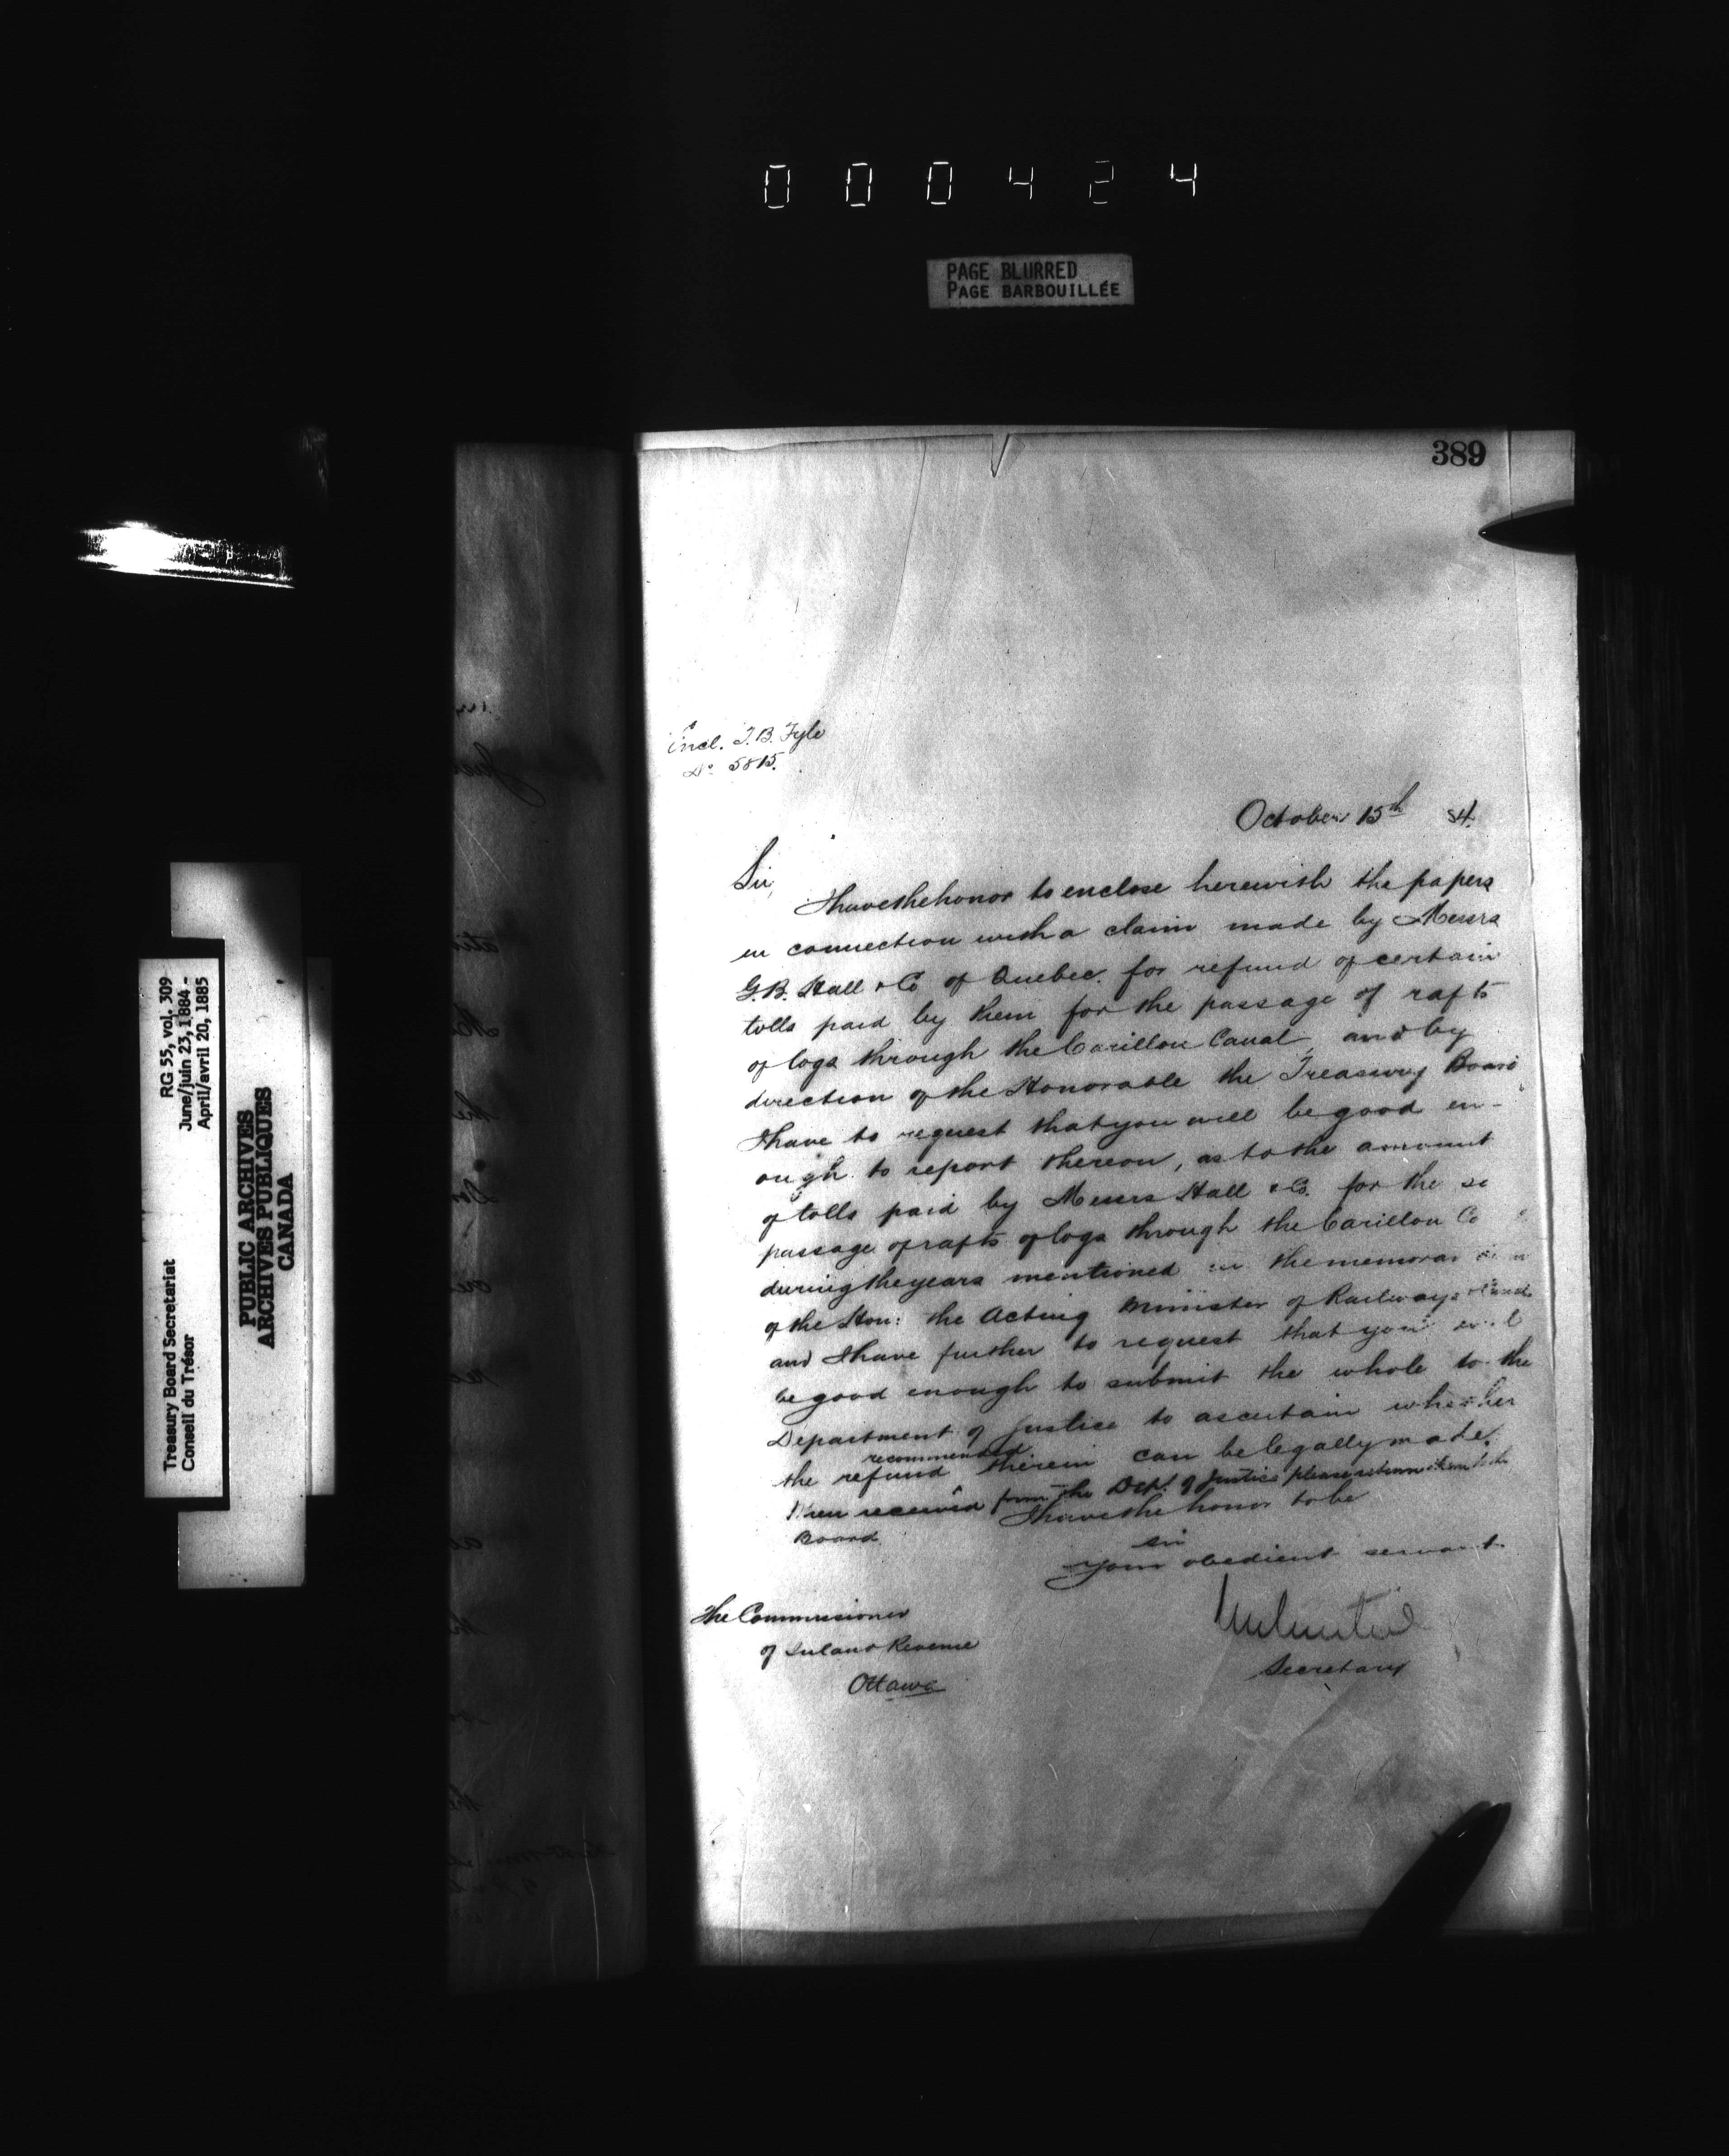 000424
PAGE BLURRED
PAGE BARBOUILLÉE
389
RG 55, vol. 309
June/juin 23, 1884 -
April/avril 20, 1885
Treasury Board Secretariat
Conseil du Trésor
PUBLIC ARCHIVES
ARCHIVES PUBLIQUES
CANADA
Encl. T.B. Fyle
No 5815.
October 15th 84.
Sir,
I have the honor to enclose herewith the papers
in connection with a claim made by Messrs
G.B. Hall & Co of Quebec. for refund of certain
tolls paid by them for the passage of rafts
of logs through the Carillon Canal and by
direction of the Honorable the Treasury Board
I have to request that you will be good en-
ough to report thereon, as to the amount
of tolls paid by Messrs Hall & Co. for the
passage of rafts of logs through the Carillon
during the years mentioned in the memoran
of the Hon: the Acting Minister of Railways
and I have further to request that you will
be good enough to submit the whole to the
Department of Justice to ascertain whether
recommended
the refund therein can be legally made.
When received from the Dept. of Justice please return
Board
I have the honor to be
Sir
Your obedient servant
Secretary
The Commissioner
of Inland Revenue
Ottawa